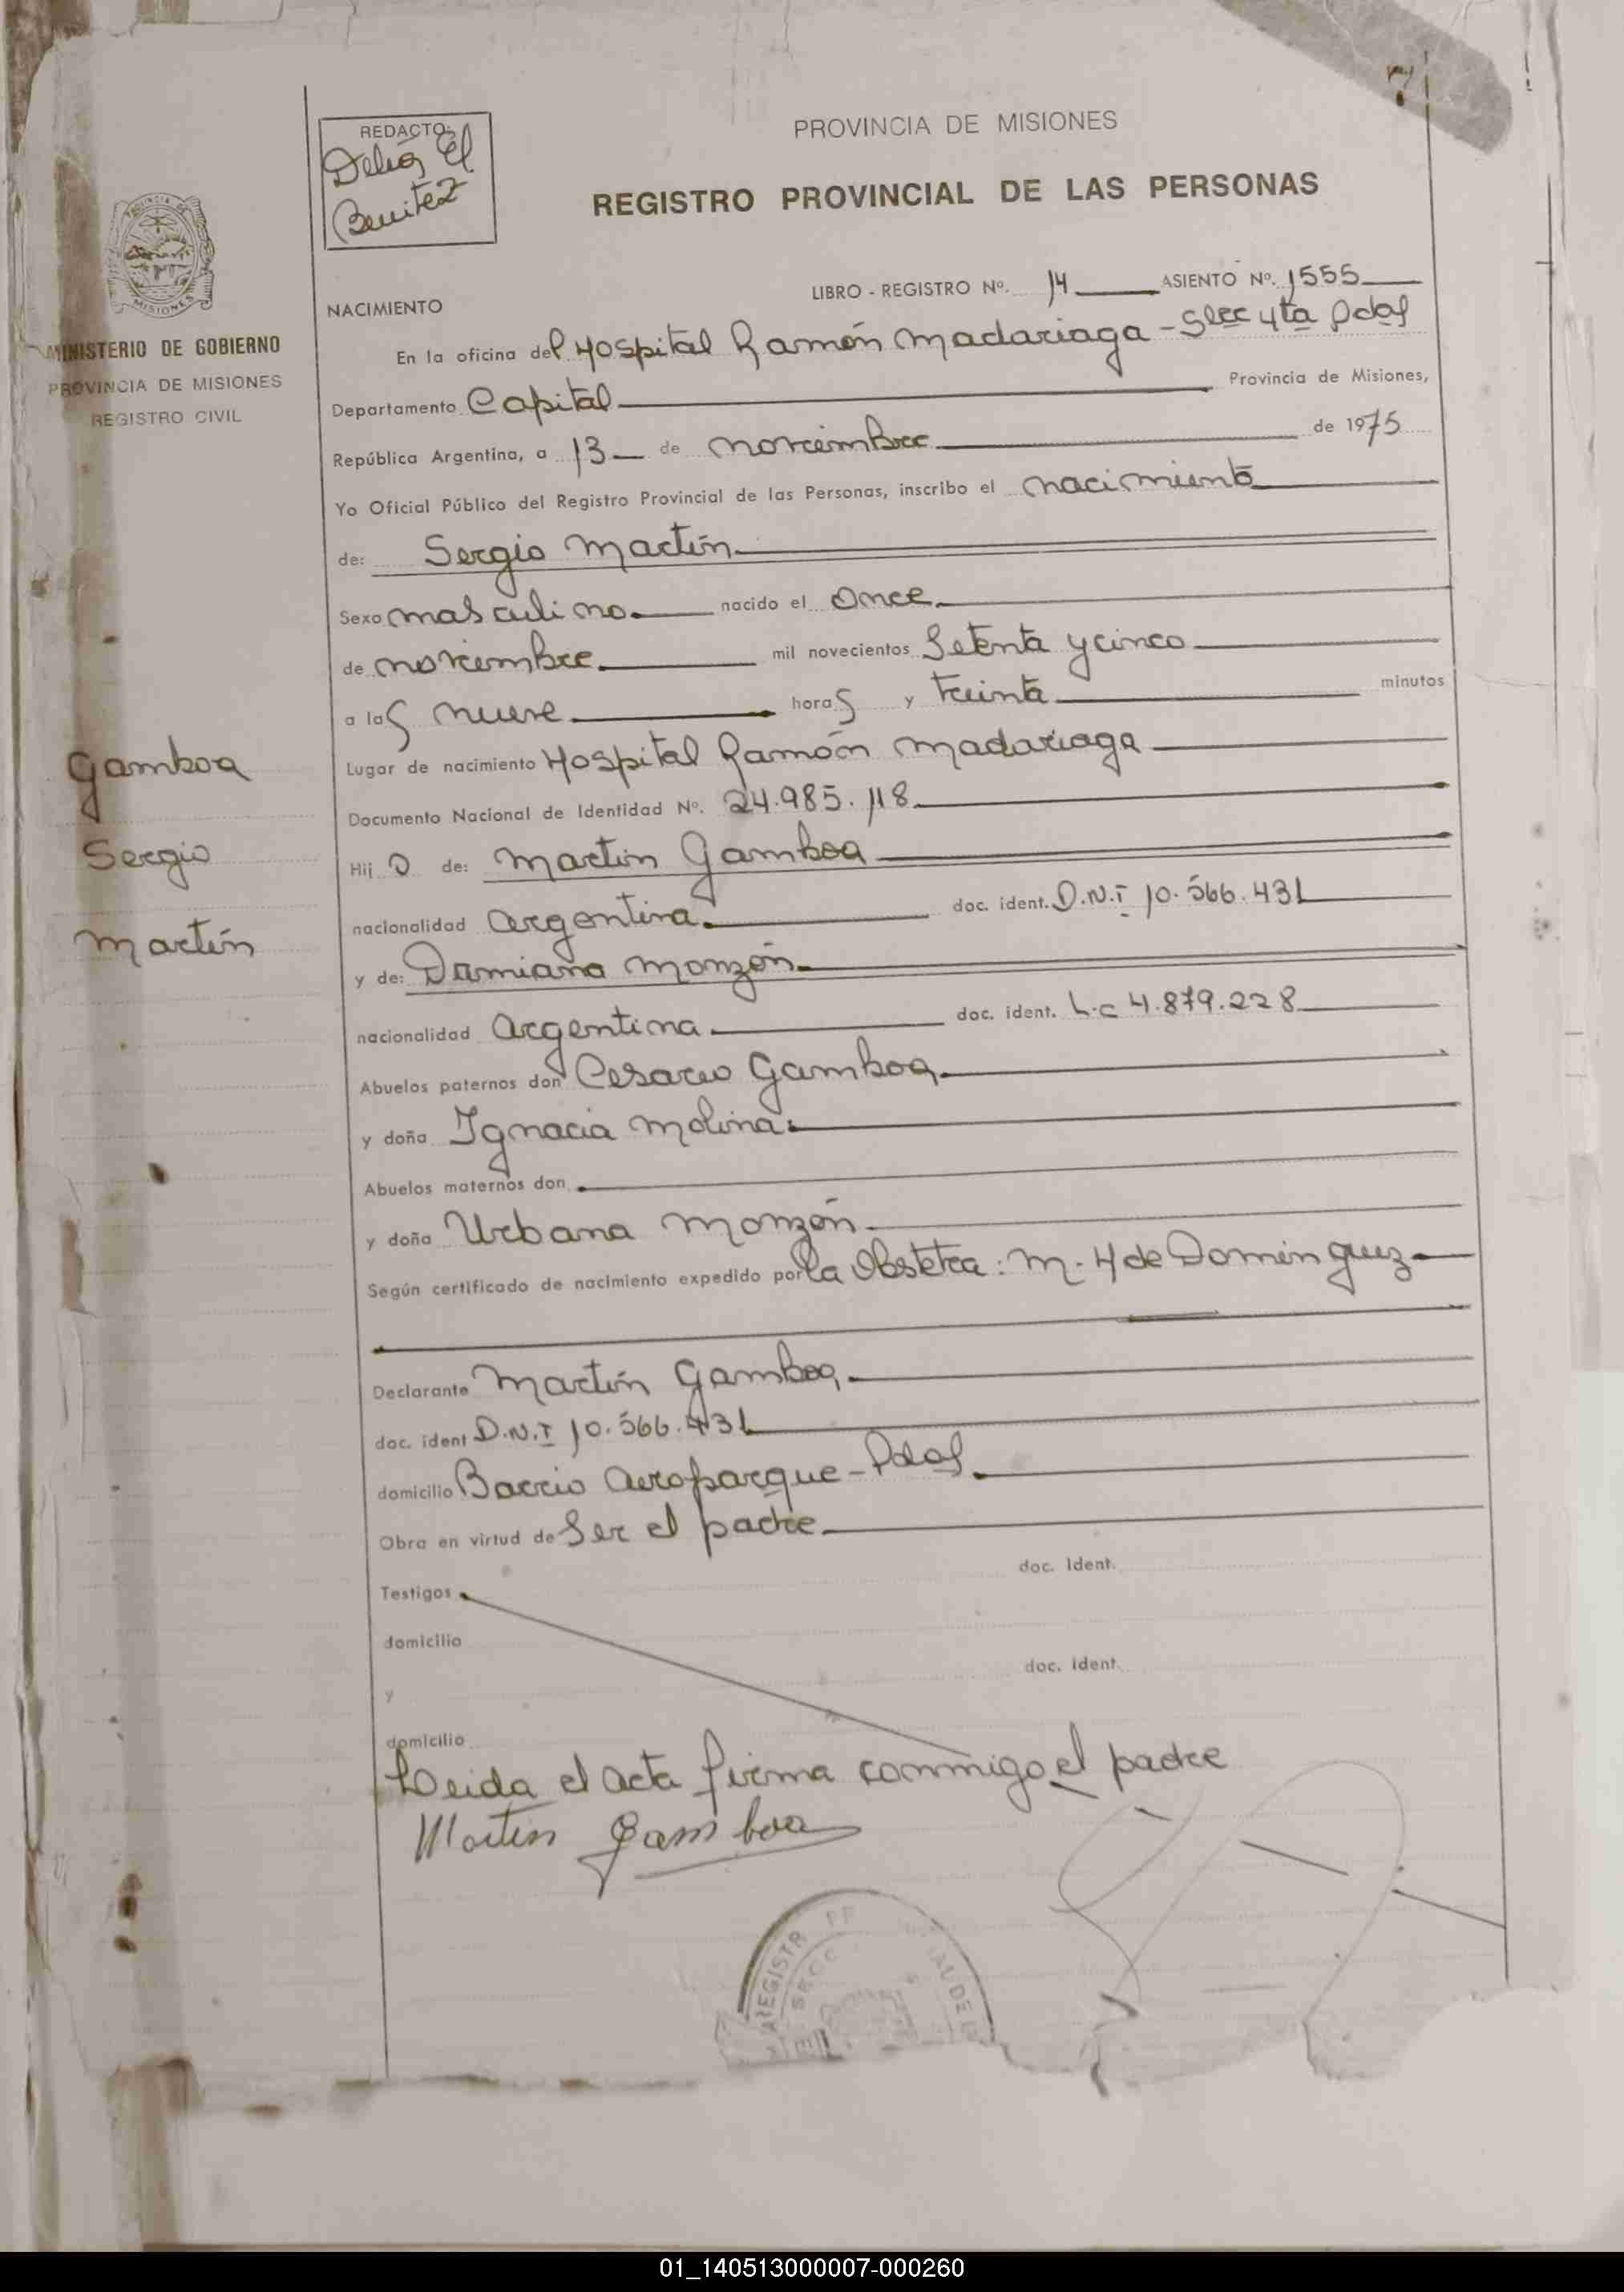 7
REDACTO:
Delia El
Benitez
PROVINCIA DE MISIONES
REGISTRO PROVINCIAL DE LAS PERSONAS
PROVINCIA DE
MISIONES
MINISTERIO DE GOBIERNO
PROVINCIA DE MISIONES
REGISTRO CIVIL
LIBRO - REGISTRO Nº. 14 ASIENTO Nº. 1555
NACIMIENTO
En la oficina del Hospital Ramón Madariaga - Secc 4ta Pdas
Departamento Capital Provincia de Misiones,
República Argentina, a 13 de noviembre de 1975
Yo Oficial Público del Registro Provincial de las Personas, inscribo el nacimiento
de: Sergio Martín
Sexo masculino nacido el Once
de noviembre mil novecientos Setenta y cinco
a las nueve horas y treinta minutos
Lugar de nacimiento Hospital Ramón Madariaga
Documento Nacional de Identidad Nº. 24.985.118
Hijo de: Martín Gamboa
nacionalidad argentina doc. ident. D.N.I 10.566.431
y de: Damiana Monzón
nacionalidad argentina doc. ident. L.C 4.879.228
Abuelos paternos don Cesareo Gamboa
y doña Ignacia Molina
Abuelos maternos don
y doña Urbana Monzón
Según certificado de nacimiento expedido por la Obstetra: M. H de Dominguez
Declarante Martín Gamboa
doc. ident D.N.I 10.566.431
domicilio Barrio Aeroparque - Pdas
Obra en virtud de Ser el padre
doc. ident.
Testigos
domicilio
doc. ident.
y
domicilio
Leida el acta firma conmigo el padre
Martin Gamboa
Gamboa
Sergio
Martín
REGISTR
SECC
01_140513000007-000260